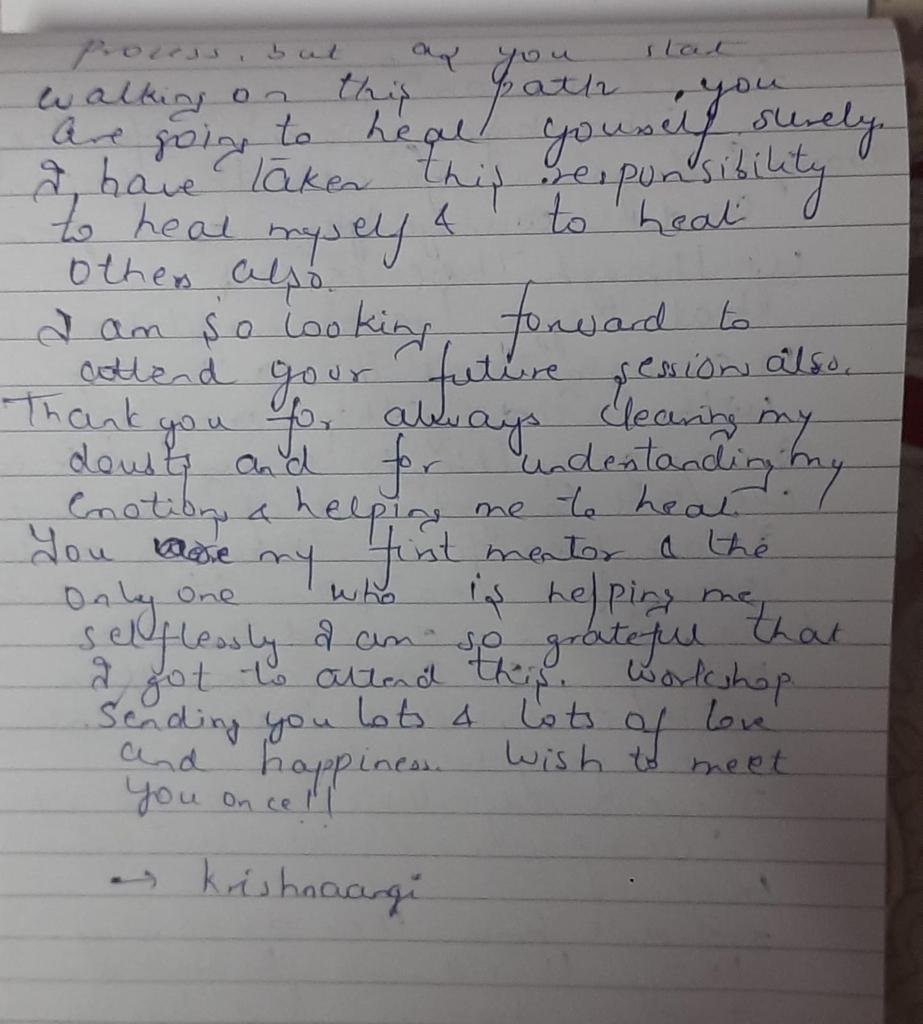 Process. but as you star
walking on this path, you
are going to heal yourself surely.
I have taken this responsibility
to heal myself & to heal
others also.
I am so looking forward to
attend your future sessions also.
Thank you for always clearing my
doubts and for understanding my
emotions & helping me to heal.
You are my first mentor & the
only one who is helping me
selflessly I am so grateful that
I got to attend this. workshop
Sending you lots & lots of love
and happiness. Wish to meet
you once!!
→ Krishnaangi